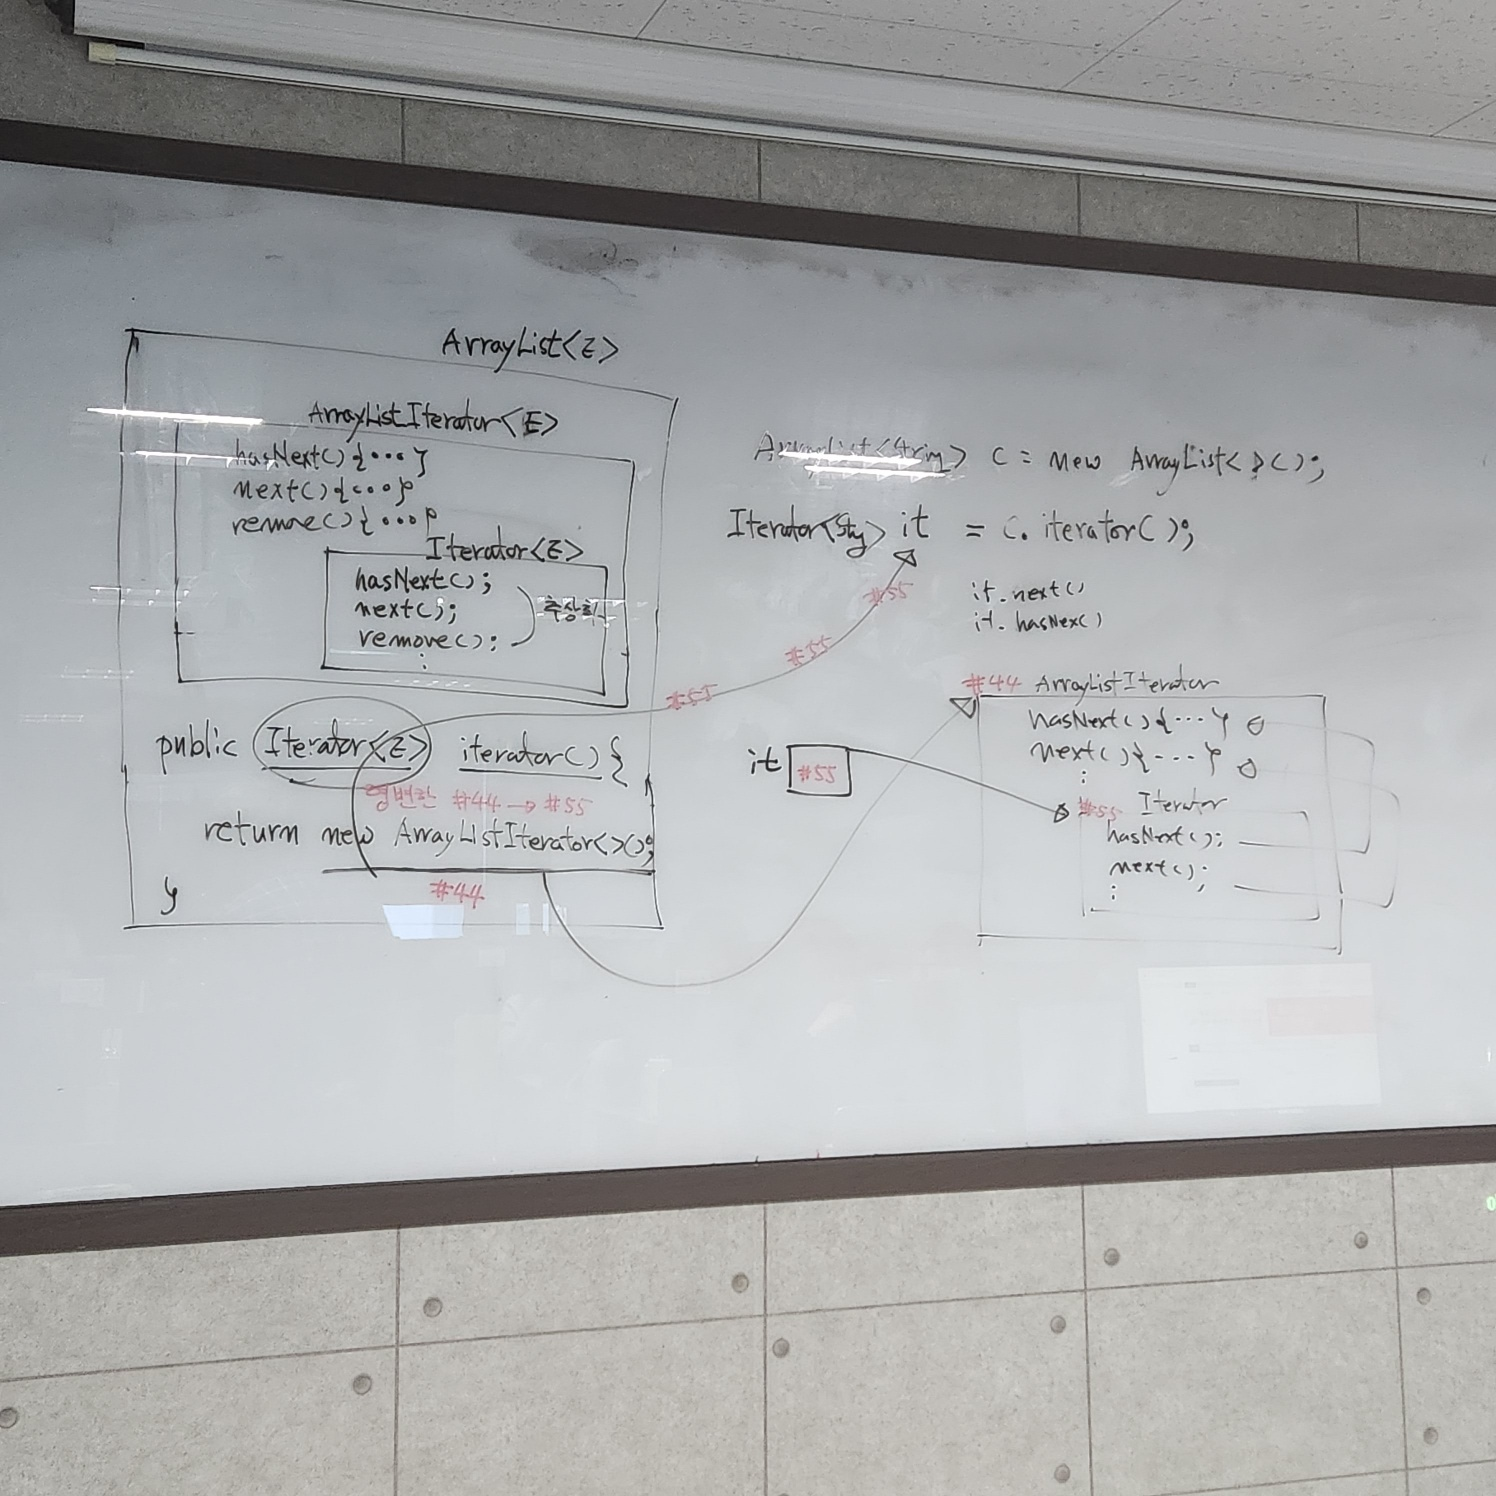 ArrayList<E>
ArrayListIterator<E>
hasNext(){···}
next(){···}
remove(){···}
Iterator<E>
hasNext();
next();
remove();
:
추상화
public Iterator<E> iterator(){
형변환 #44→#55
return new ArrayListIterator<>();
#44
}
ArrayList<String> c = new ArrayList<>();
Iterator<Stg> it = c.iterator();
#55
#55
#55
it.next()
it.hasNex()
it #55
#44 ArrayListIterator
hasNext(){···}
next(){···}
:
#55 Iterator
hasNext();
next();
: